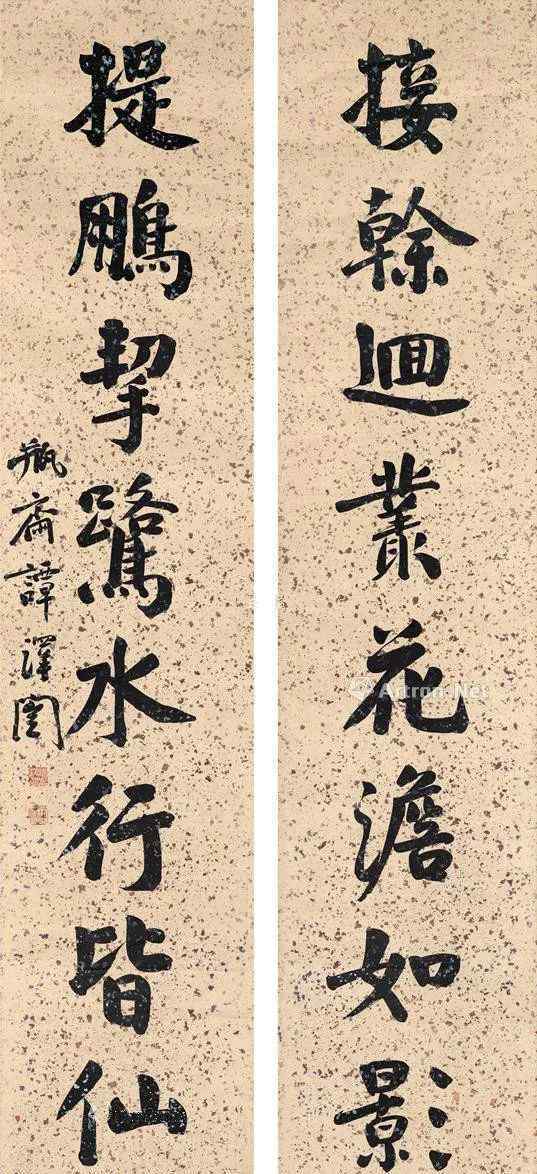 接榦迴叢花澹如影
提鵬挈鷺水行皆仙
瓶齋譚澤闓
Artron.Net